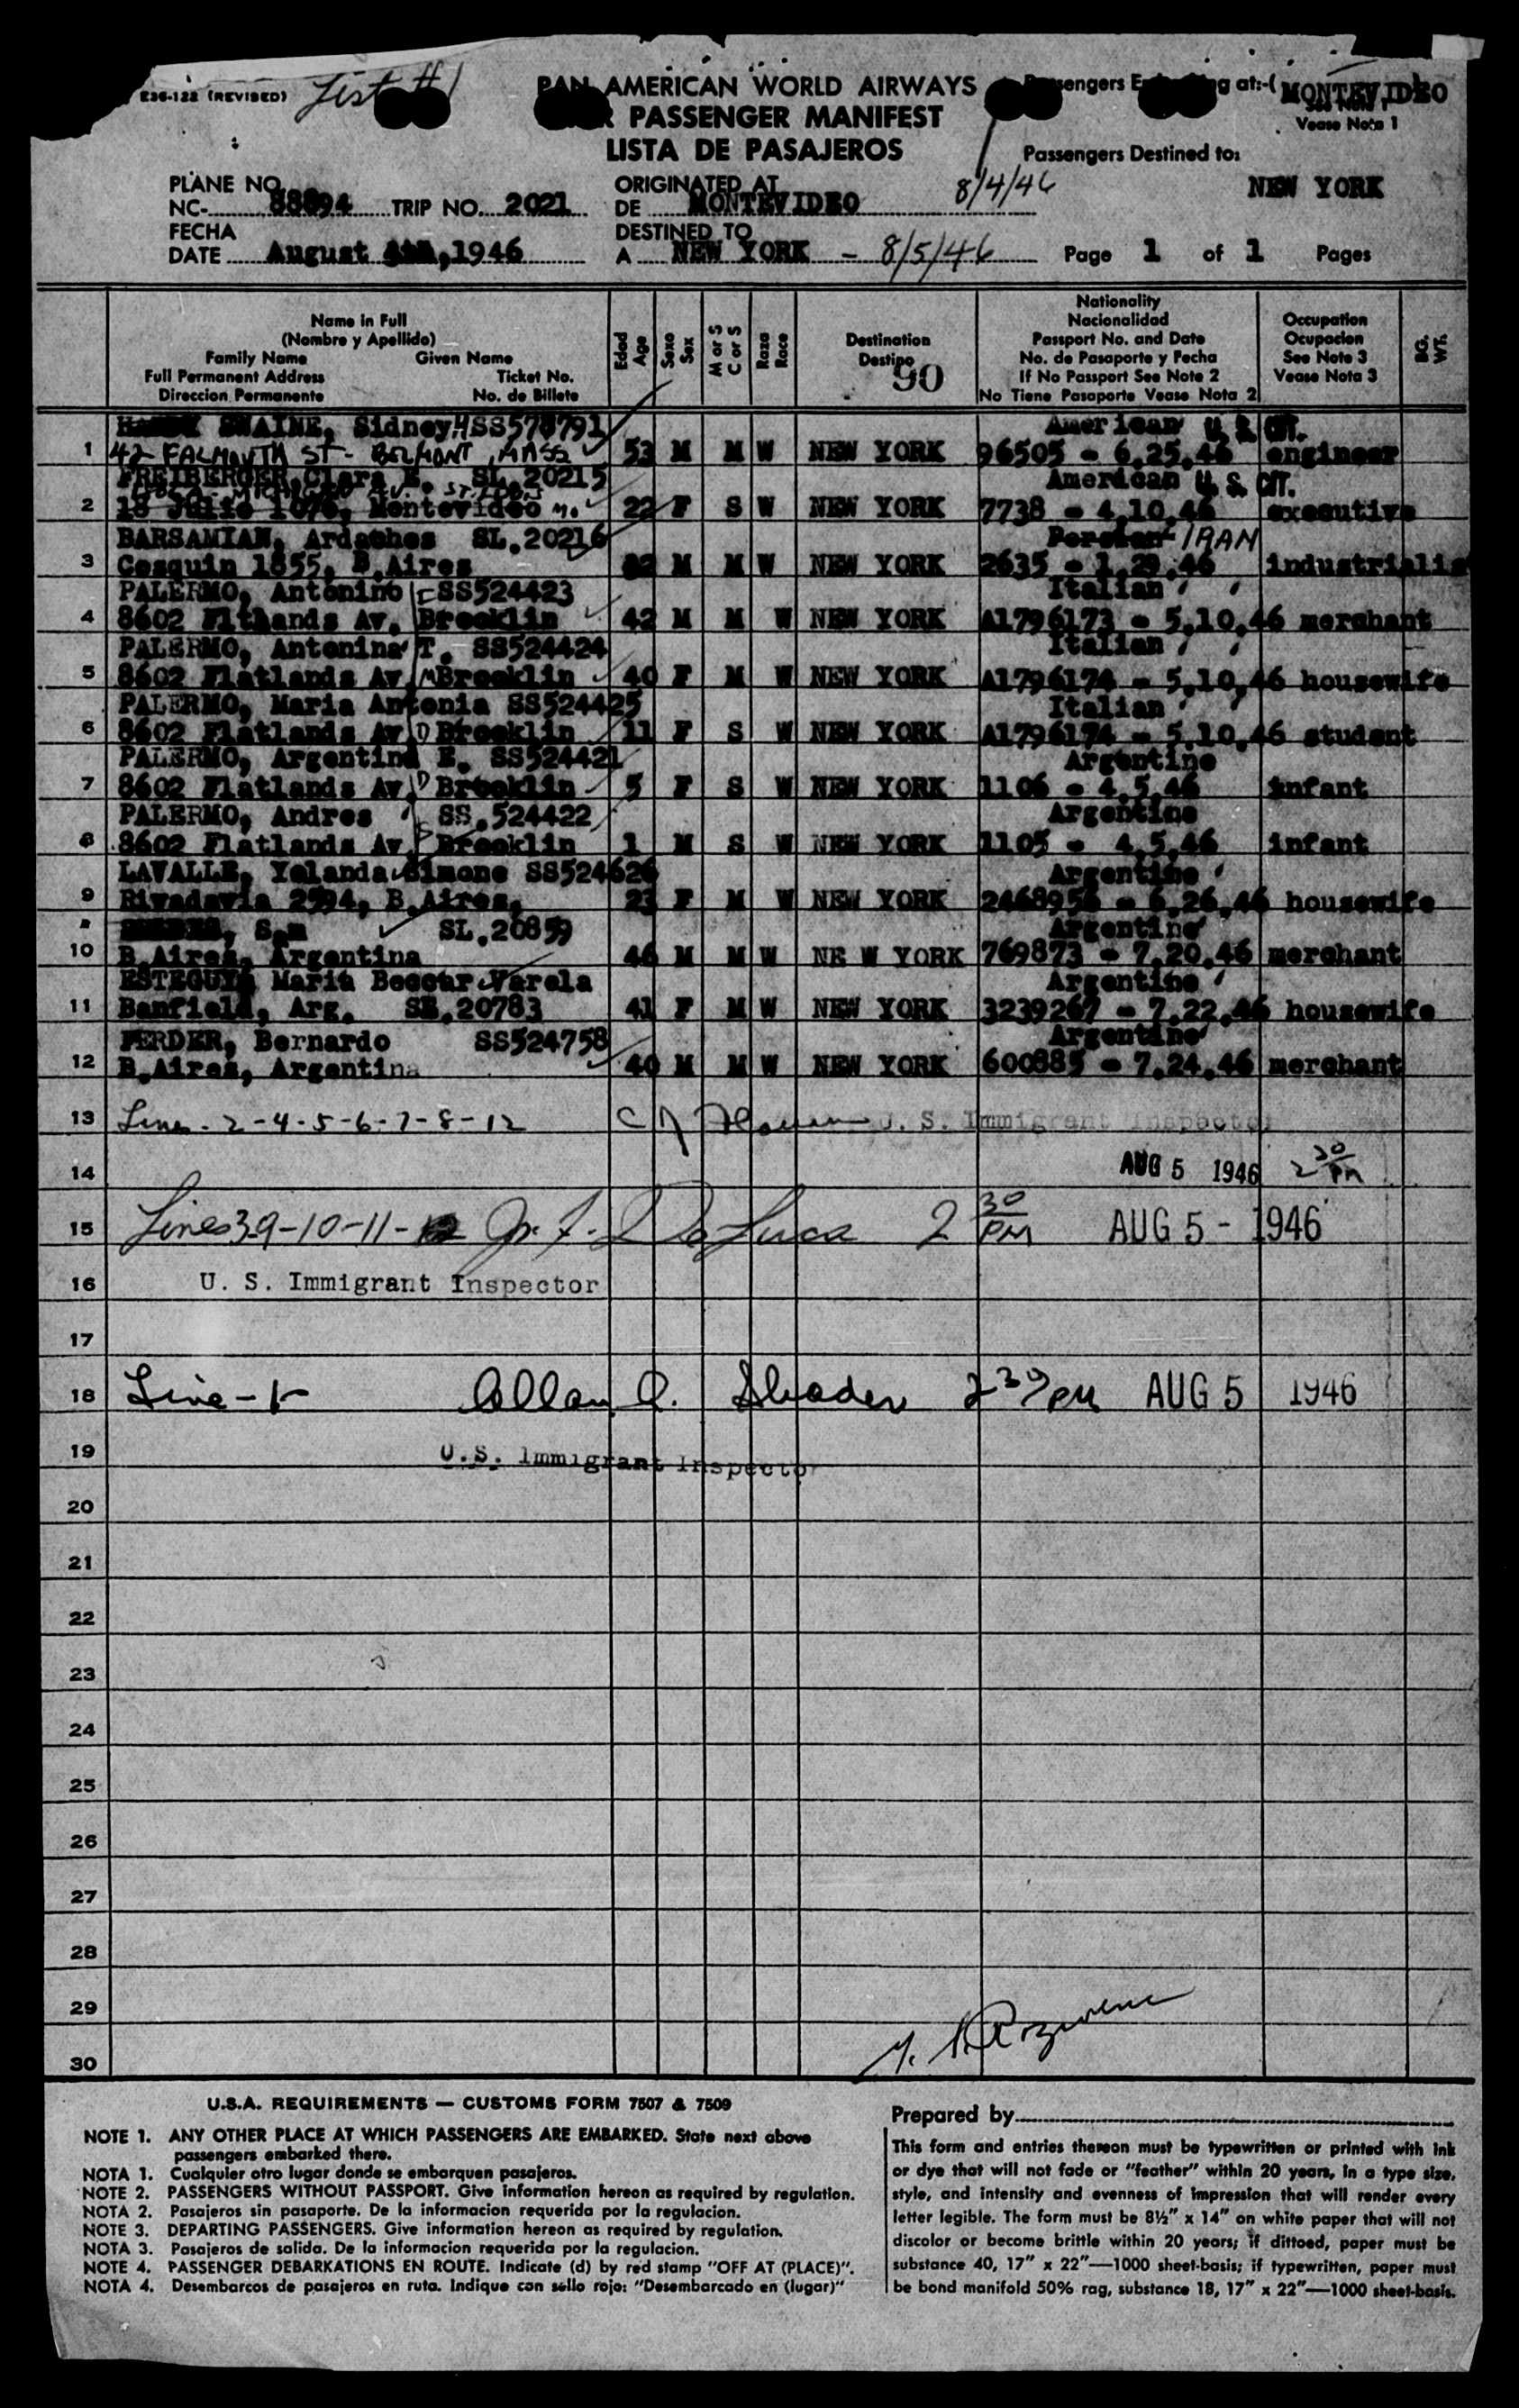 E36-122 (REVISED) List #1
PAN AMERICAN WORLD AIRWAYS
PASSENGER MANIFEST
LISTA DE PASAJEROS
at:-( MONTEVIDEO
Vease Nota 1
Passengers Destined to:
NEW YORK
PLANE NO.
NC- 88894 TRIP NO. 2021
FECHA
DATE August 4th, 1946
ORIGINATED AT
DE MONTEVIDEO 8/4/46
DESTINED TO
A NEW YORK - 8/5/46
Page 1 of 1 Pages
Name in Full
(Nombre y Apellido)
Family Name Given Name
Full Permanent Address Ticket No.
Direccion Permanente No. de Billete
Edad Age
Sexo Sex
M or S C or S
Raza Race
Destination
Destino
90
Nationality
Nacionalidad
Passport No. and Date
No. de Pasaporte y Fecha
If No Passport See Note 2
No Tiene Pasaporte Vease Nota 2
Occupation
Ocupacion
See Note 3
Vease Nota 3
BG. WT.
SWAINE, Sidney H SS578791 American U.S. CIT.
1 42 FALMOUTH ST- BELMONT, MASS 53 M M W NEW YORK 96505 - 6,25,46 engineer
FREIBERGER, Clara E. SL.20215 American U.S. CIT.
2 18 Julio 1070, Montevideo Mo. 22 F S W NEW YORK 7738 - 4,10,46 executive
BARSAMIAN, Ardaches SL.20216 Persian IRAN
3 Cosquin 1855, B.Aires M M W NEW YORK 2635 - 1,29,46 industrialis
PALERMO, Antonino SS524423 Italian
4 8602 Fltlands Av. Brooklin 42 M M W NEW YORK A1796173 - 5,10,46 merchant
PALERMO, Antonina T. SS524424 Italian
5 8602 Flatlands Av. Brooklin 40 F M W NEW YORK A1796174 - 5,10,46 housewife
PALERMO, Maria Antonia SS524425 Italian
6 8602 Flatlands Av. Brooklin 11 F S W NEW YORK A1796174 - 5,10,46 student
PALERMO, Argentina E. SS524421 Argentine
7 8602 Flatlands Av. Brooklin 5 F S W NEW YORK 1106 - 4,5,46 infant
PALERMO, Andres SS.524422 Argentine
8 8602 Flatlands Av. Brooklin 1 M S W NEW YORK 1105 - 4,5,46 infant
LAVALLE, Yolanda Simone SS524626 Argentine
9 Rivadavia 2594, B.Aires, 23 F M W NEW YORK 2468956 - 6,26,46 housewife
SL.20859 Argentine
10 B.Aires, Argentina 46 M M W NE W YORK 769873 - 7,20,46 merchant
ESTEGUY, Maria Beccar Varela Argentine
11 Banfield, Arg. SL.20783 41 F M W NEW YORK 3239267 - 7,22,46 housewife
FERDER, Bernardo SS524758 Argentine
12 B.Aires, Argentina 40 M M W NEW YORK 600885 - 7,24,46 merchant
13 Lines - 2-4-5-6-7-8-12 U. S. Immigrant Inspector
14 AUG 5 1946 2 30 PM
15 Lines 3-9-10-11- De Luca 2 30 PM AUG 5 - 1946
16 U. S. Immigrant Inspector
17
18 Line-1- Allan 2 30 PM AUG 5 1946
19 U.S. Immigrant Inspector
20
21
22
23
24
25
26
27
28
29
30
U.S.A. REQUIREMENTS — CUSTOMS FORM 7507 & 7509
NOTE 1. ANY OTHER PLACE AT WHICH PASSENGERS ARE EMBARKED. State next above
passengers embarked there.
NOTA 1. Cualquier otro lugar donde se embarquen pasajeros.
NOTE 2. PASSENGERS WITHOUT PASSPORT. Give information hereon as required by regulation.
NOTA 2. Pasajeros sin pasaporte. De la informacion requerida por la regulacion.
NOTE 3. DEPARTING PASSENGERS. Give information hereon as required by regulation.
NOTA 3. Pasajeros de salida. De la informacion requerida por la regulacion.
NOTE 4. PASSENGER DEBARKATIONS EN ROUTE. Indicate (d) by red stamp "OFF AT (PLACE)".
NOTA 4. Desembarcos de pasajeros en ruta. Indique con sello rojo: "Desembarcado en (lugar)"
Prepared by
This form and entries thereon must be typewritten or printed with ink
or dye that will not fade or "feather" within 20 years, in a type size,
style, and intensity and evenness of impression that will render every
letter legible. The form must be 8½" x 14" on white paper that will not
discolor or become brittle within 20 years; if dittoed, paper must be
substance 40, 17" x 22"—1000 sheet-basis; if typewritten, paper must
be bond manifold 50% rag, substance 18, 17" x 22"—1000 sheet-basis.